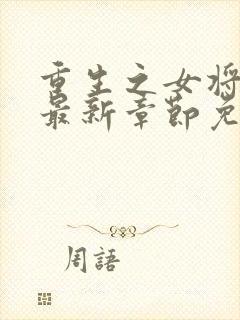 重生之女将
最新章節免
周語